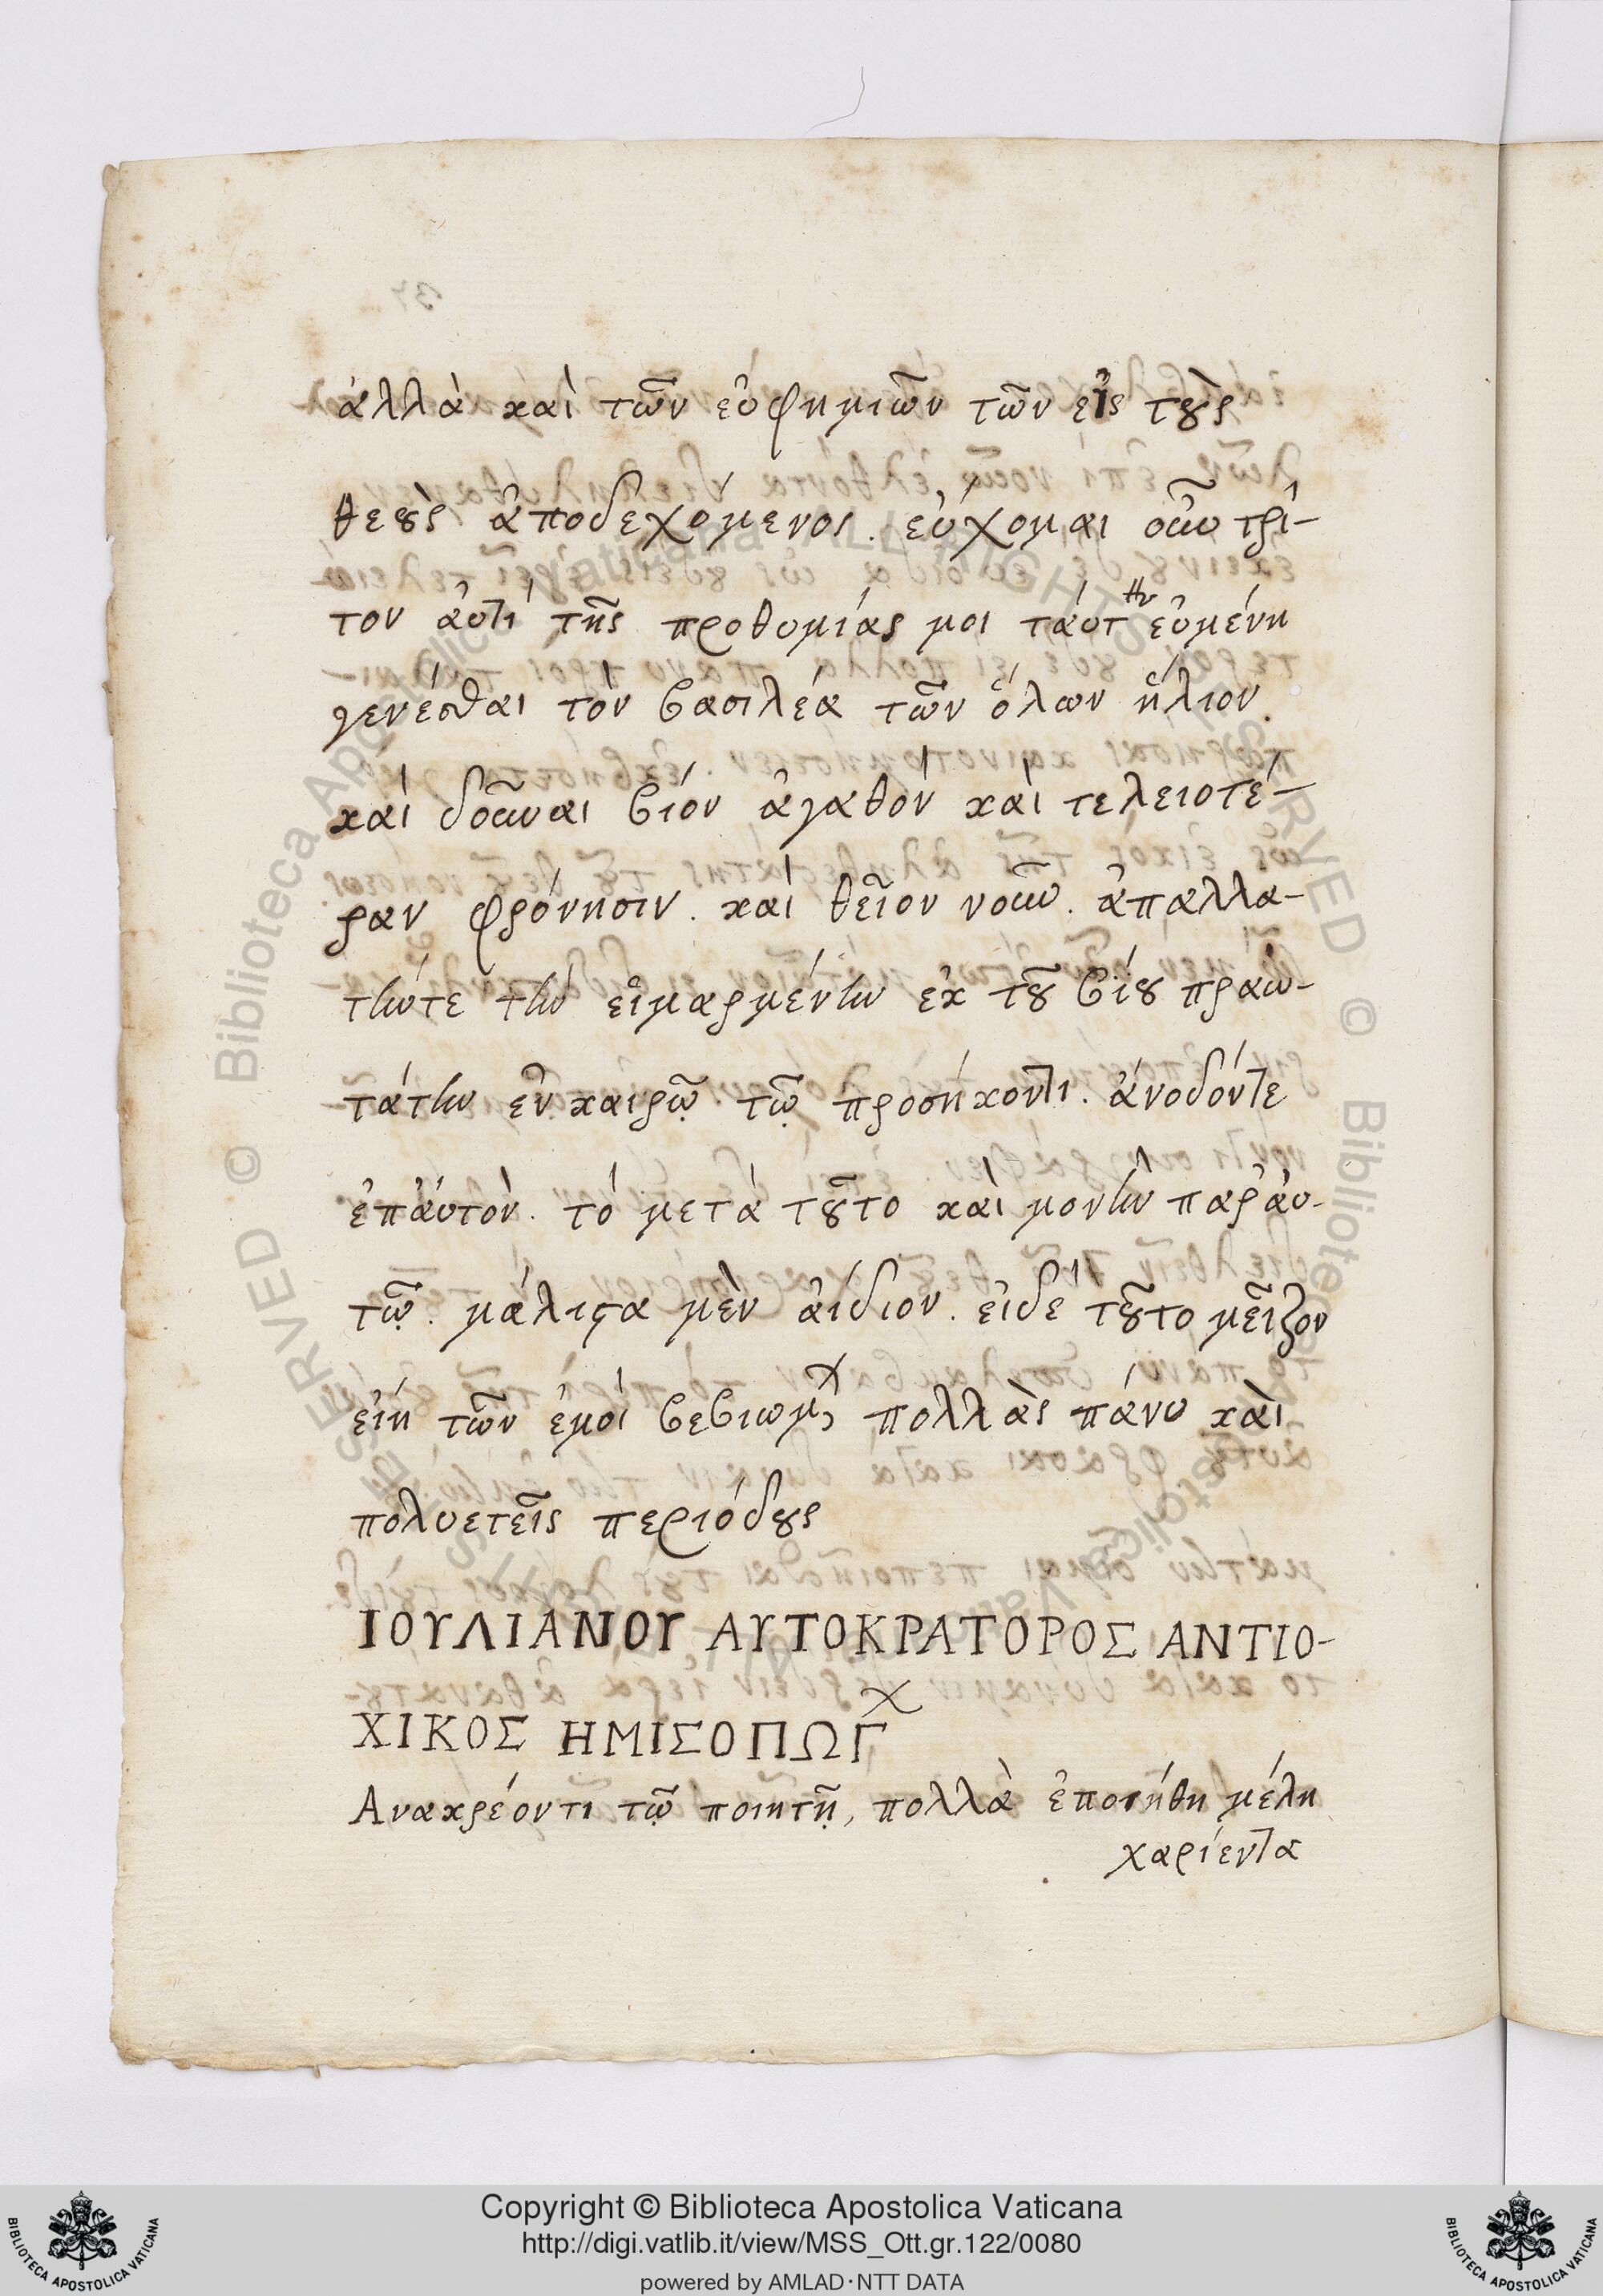 ἀλλὰ καὶ τῶν εὐφημιῶν τῶν εἰς τοὺς
θεοὺς ἀποδεχόμενος. εὔχομαι οὖν τρί-
τον ἀντὶ τῆς προθυμίας μοι ταύτην εὐμένη
γενέσθαι τὸν βασιλέα τῶν ὅλων ἥλιον.
καὶ δοῦναι βίον ἀγαθὸν καὶ τελειοτέ-
ραν φρόνησιν. καὶ θεῖον νοῦν. ἀπαλλα-
τήντε τὴν εἱμαρμένην ἐκ τοῦ βίου πραω-
τάτην ἐν καιρῷ τῷ προσήκοντι. ἄνοδόντε
ἐπ' αὐτὸν. τὸ μετὰ τοῦτο καὶ μονὴν παρ' αὐ-
τῷ. μάλιστα μὲν ἀίδιον. εἰδὲ τοῦτο μεῖζον
εἴη τῶν ἐμοὶ βεβιωμ, πολλὰς πάνυ καὶ
πολυετεῖς περιόδους
ΙΟΥΛΙΑΝΟΥ ΑΥΤΟΚΡΑΤΟΡΟΣ ΑΝΤΙΟ-
ΧΙΚΟΣ ΗΜΙΣΟΠΩΓ
Ανακρέοντι τῷ ποιητῇ, πολλὰ ἐποιήθη μέλη
χαρίεντα
Copyright © Biblioteca Apostolica Vaticana
http://digi.vatlib.it/view/MSS_Ott.gr.122/0080
powered by AMLAD·NTT DATA
BIBLIOTECA APOSTOLICA VATICANA
BIBLIOTECA APOSTOLICA VATICANA